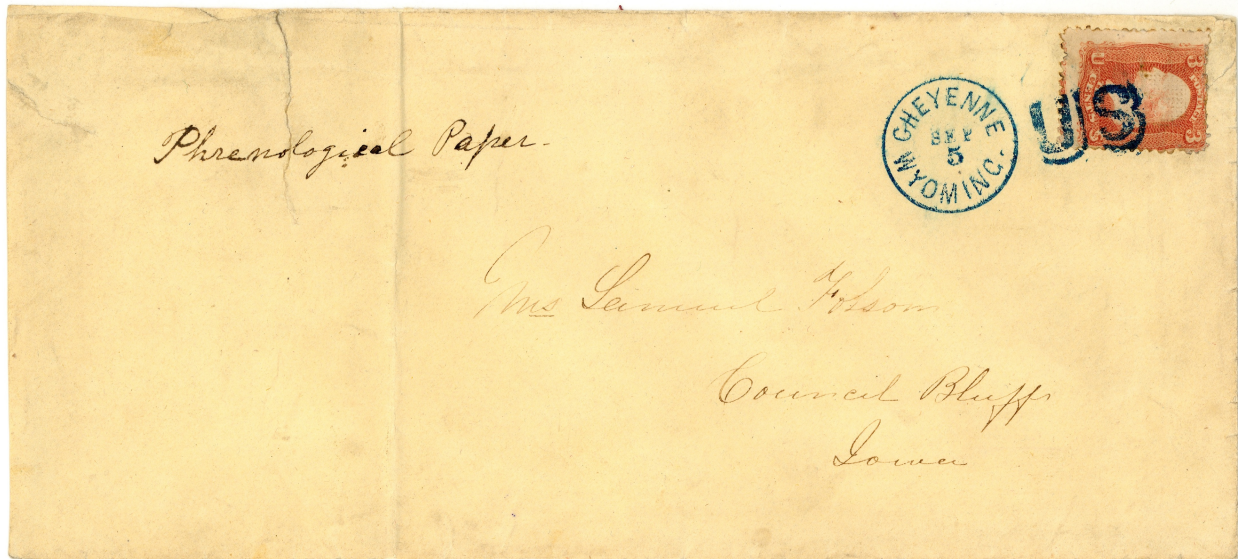 Phrenological Paper.
CHEYENNE
SEP
5
WYOMING.
US
U 3
CENTS
POSTAGE
3
Mrs Folsom
Council Bluffs
Iowa